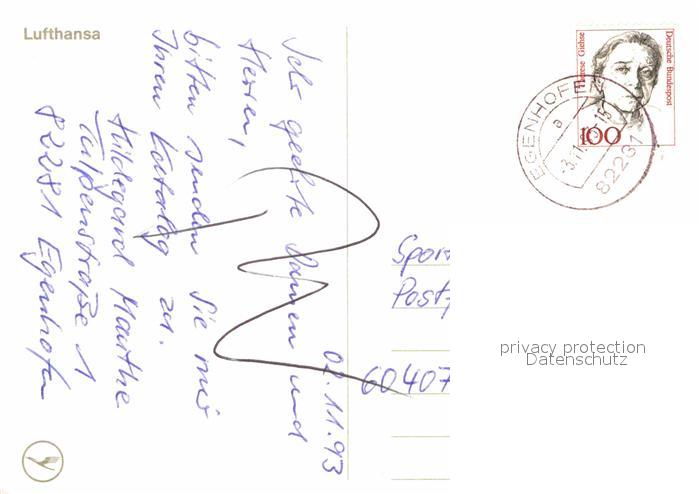 Lufthansa
02.11.93
Sehr geehrte Damen und
Herren,
bitten senden Sie mir
Ihren Katalog zu.
Hildegard Marthe
Tulpenstraße 1
82281 Egenhofen
Therese Giehse
Deutsche Bundespost
100
EGENHOFEN
a
-3.11.
82281
Spor
Post
60407
privacy protection
Datenschutz